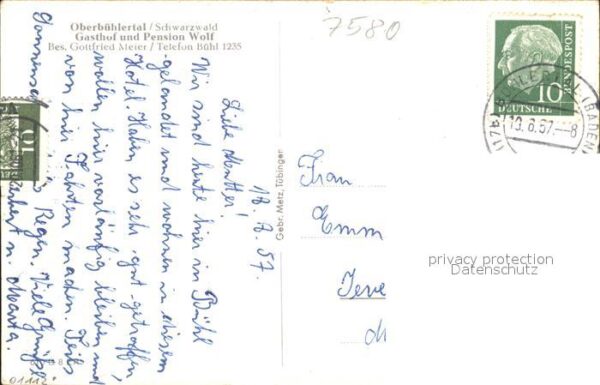 Oberbühlertal / Schwarzwald
Gasthof und Pension Wolf
Bes. Gottfried Meier / Telefon Bühl 1235
7580
DEUTSCHE BUNDESPOST
10
(17b) BÜHLERTAL (BADEN)
19.8.57.-8
10
18.8.57.
Liebe Mutter!
Wir sind heute hier in Bühl
gelandet und wohnen in diesem
Hotel. Haben es sehr gut getroffen,
wollen hier vorläufig bleiben und
von hier Fahrten machen. Teils
Sonnensch Regen. Viele Grüße
Herbert u. Marta.
Gebr. Metz, Tübingen
Frau
Emm
Jeve
privacy protection
Datenschutz
01112